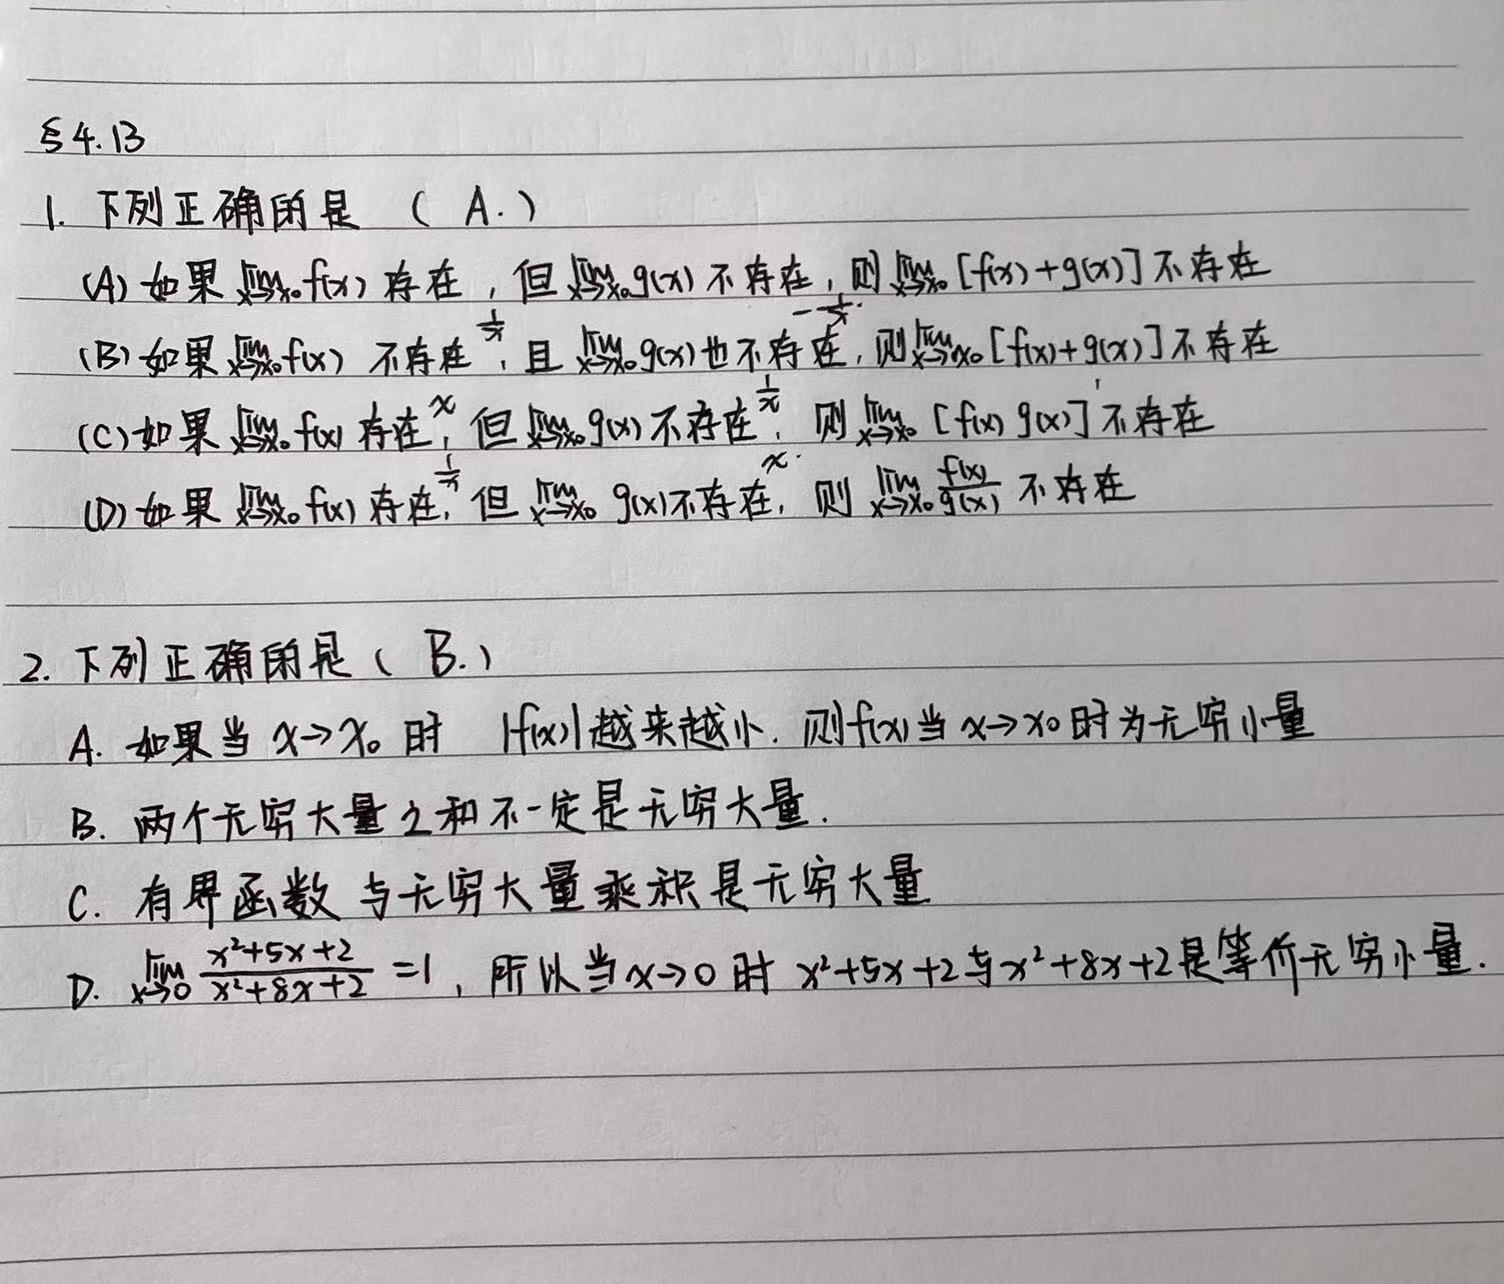 §4.13
1. 下列正确的是 ( A. )
(A) 如果 lim x→x₀ f(x) 存在, 但 lim x→x₀ g(x) 不存在, 则 lim x→x₀ [f(x)+g(x)] 不存在
(B) 如果 lim x→x₀ f(x) 不存在 1/x, 且 lim x→x₀ g(x) 也不存在 -1/x, 则 lim x→x₀ [f(x)+g(x)] 不存在
(C) 如果 lim x→x₀ f(x) 存在 x, 但 lim x→x₀ g(x) 不存在 1/x, 则 lim x→x₀ [f(x) g(x)] 不存在
(D) 如果 lim x→x₀ f(x) 存在 1/x, 但 lim x→x₀ g(x) 不存在 x, 则 lim x→x₀ f(x)/g(x) 不存在
2. 下列正确的是 ( B. )
A. 如果当 x→x₀ 时 |f(x)| 越来越小. 则 f(x) 当 x→x₀ 时为无穷小量
B. 两个无穷大量之和不一定是无穷大量.
C. 有界函数与无穷大量乘积是无穷大量
D. lim x→0 (x²+5x+2)/(x²+8x+2) =1, 所以当 x→0 时 x²+5x+2 与 x²+8x+2 是等价无穷小量.